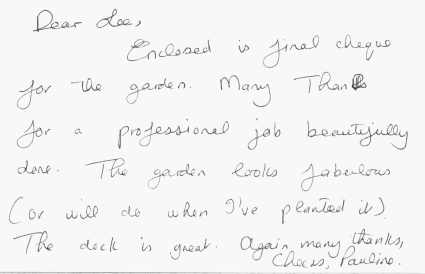 Dear Lee,
Enclosed is final cheque
for the garden. Many Thanks
for a professional job beautifully
done. The garden looks fabulous
(or will do when I've planted it).
The deck is great. Again, many thanks,
Cheers, Pauline.